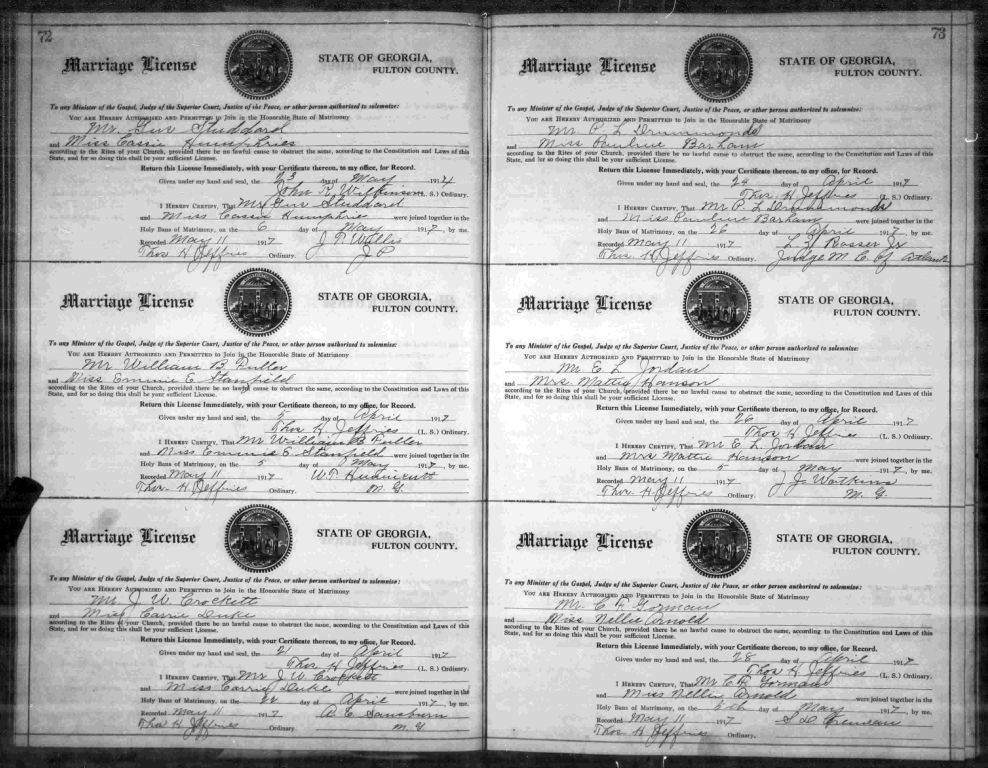 72
Marriage License
STATE OF GEORGIA,
FULTON COUNTY.
To any Minister of the Gospel, Judge of the Superior Court, Justice of the Peace, or other person authorized to solemnize:
YOU ARE HEREBY AUTHORIZED AND PERMITTED to Join in the Honorable State of Matrimony
Mr. Gus Studdard
and Miss Cassie Humphries
according to the Rites of your Church, provided there be no lawful cause to obstruct the same, according to the Constitution and Laws of this
State, and for so doing this shall be your sufficient License.
Return this License Immediately, with your Certificate thereon, to my office, for Record.
Given under my hand and seal, the 23 day of May 1914
John R Wilkinson (L. S.) Ordinary.
I HEREBY CERTIFY, That Mr Gus Studdard
and Miss Cassie Humphrie were joined together in the
Holy Bans of Matrimony, on the 6 day of May 1917, by me.
Recorded May 11 1917 J T Wallis
Thos H Jeffries Ordinary. J P
Marriage License
STATE OF GEORGIA,
FULTON COUNTY.
To any Minister of the Gospel, Judge of the Superior Court, Justice of the Peace, or other person authorized to solemnize:
YOU ARE HEREBY AUTHORIZED AND PERMITTED to Join in the Honorable State of Matrimony
Mr William B Fuller
and Miss Emmie E Stanfield
according to the Rites of your Church, provided there be no lawful cause to obstruct the same, according to the Constitution and Laws of this
State, and for so doing this shall be your sufficient License.
Return this License Immediately, with your Certificate thereon, to my office, for Record.
Given under my hand and seal, the 5 day of April 1917
Thos H Jeffries (L. S.) Ordinary.
I HEREBY CERTIFY, That Mr William B Fuller
and Miss Emmie E Stanfield were joined together in the
Holy Bans of Matrimony, on the 5 day of May 1917, by me.
Recorded May 11 1917 W. T. Hunnicutt
Thos. H Jeffries Ordinary. M. G.
Marriage License
STATE OF GEORGIA,
FULTON COUNTY.
To any Minister of the Gospel, Judge of the Superior Court, Justice of the Peace, or other person authorized to solemnize:
YOU ARE HEREBY AUTHORIZED AND PERMITTED to Join in the Honorable State of Matrimony
Mr J W Crockett
and Miss Carrie Duke
according to the Rites of your Church, provided there be no lawful cause to obstruct the same, according to the Constitution and Laws of this
State, and for so doing this shall be your sufficient License.
Return this License Immediately, with your Certificate thereon, to my office, for Record.
Given under my hand and seal, the 21 day of April 1917
Thos H Jeffries (L. S.) Ordinary.
I HEREBY CERTIFY, That Mr J W Crockett
and Miss Carrie Duke were joined together in the
Holy Bans of Matrimony, on the 22 day of April 1917, by me.
Recorded May 11 1917 A. C.
Thos H Jeffries Ordinary. M. G.
73
Marriage License
STATE OF GEORGIA,
FULTON COUNTY.
To any Minister of the Gospel, Judge of the Superior Court, Justice of the Peace, or other person authorized to solemnize:
YOU ARE HEREBY AUTHORIZED AND PERMITTED to Join in the Honorable State of Matrimony
Mr P. L Drummonds
and Miss Pauline Barham
according to the Rites of your Church, provided there be no lawful cause to obstruct the same, according to the Constitution and Laws of this
State, and for so doing this shall be your sufficient License.
Return this License Immediately, with your Certificate thereon, to my office, for Record.
Given under my hand and seal, the 24 day of April 1917
Thos H Jeffries (L. S.) Ordinary.
I HEREBY CERTIFY, That Mr P. L Drummonds
and Miss Pauline Barham were joined together in the
Holy Bans of Matrimony, on the 26 day of April 1917, by me.
Recorded May 11 1917 L. Z. Rosser Jr
Thos. H Jeffries Ordinary. Judge M. C. of Atlanta
Marriage License
STATE OF GEORGIA,
FULTON COUNTY.
To any Minister of the Gospel, Judge of the Superior Court, Justice of the Peace, or other person authorized to solemnize:
YOU ARE HEREBY AUTHORIZED AND PERMITTED to Join in the Honorable State of Matrimony
Mr E. L Jordan
and Mrs Mattie Hanson
according to the Rites of your Church, provided there be no lawful cause to obstruct the same, according to the Constitution and Laws of this
State, and for so doing this shall be your sufficient License.
Return this License Immediately, with your Certificate thereon, to my office, for Record.
Given under my hand and seal, the 26 day of April 1917
Thos H Jeffries (L. S.) Ordinary.
I HEREBY CERTIFY, That Mr E. L. Jordan
and Mrs Mattie Hanson were joined together in the
Holy Bans of Matrimony, on the 5 day of May 1917, by me.
Recorded May 11 1917 J J Watkins
Thos. H Jeffries Ordinary. M. G.
Marriage License
STATE OF GEORGIA,
FULTON COUNTY.
To any Minister of the Gospel, Judge of the Superior Court, Justice of the Peace, or other person authorized to solemnize:
YOU ARE HEREBY AUTHORIZED AND PERMITTED to Join in the Honorable State of Matrimony
Mr. C F Gorman
and Miss Nellie Arnold
according to the Rites of your Church, provided there be no lawful cause to obstruct the same, according to the Constitution and Laws of this
State, and for so doing this shall be your sufficient License.
Return this License Immediately, with your Certificate thereon, to my office, for Record.
Given under my hand and seal, the 28 day of April 1917
Thos H Jeffries (L. S.) Ordinary.
I HEREBY CERTIFY, That Mr C. F Gorman
and Miss Nellie Arnold were joined together in the
Holy Bans of Matrimony, on the 5th day of May 1917, by me.
Recorded May 11 1917
Thos H Jeffries Ordinary.